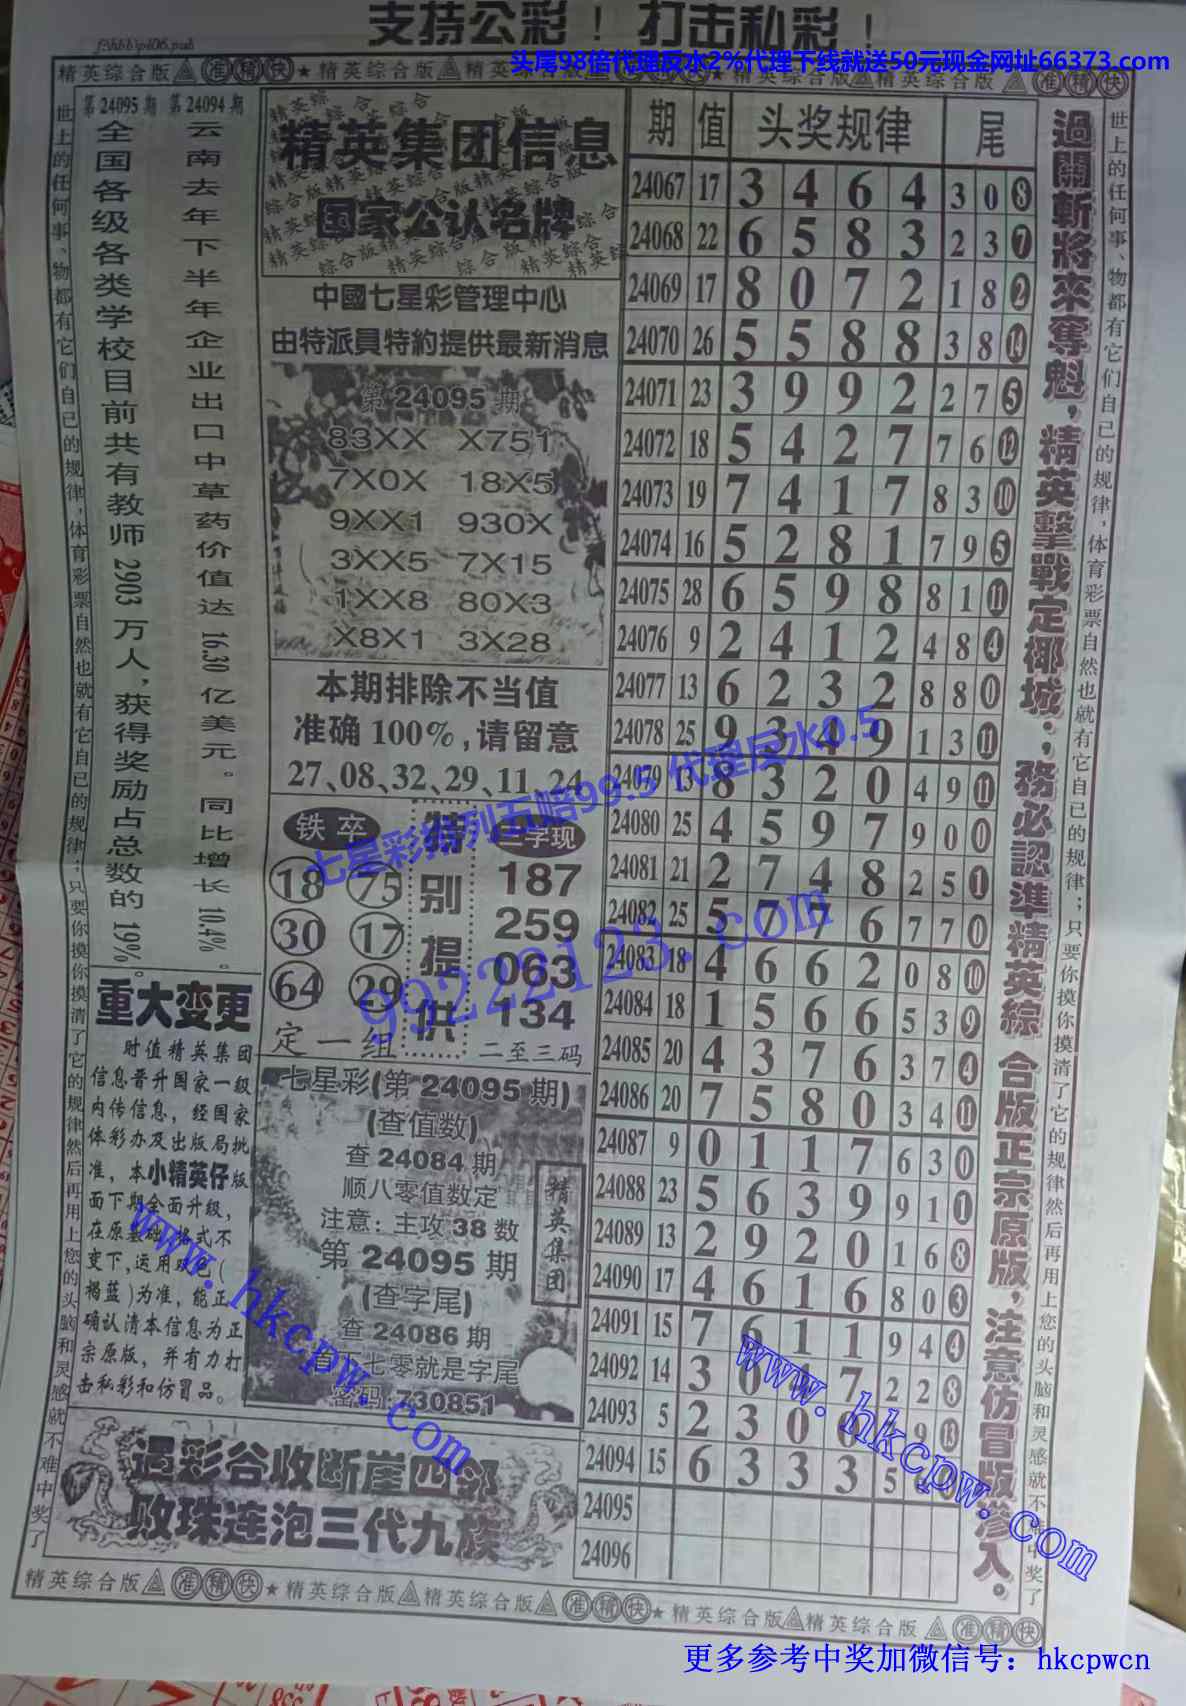 支持公彩！打击私彩！
f:\hbb\pl06.pub
头尾98倍代理反水2%代理下线就送50元现金网址66373.com
精英综合版 准精快★精英综合版 精英综合版
世上的任何事、物都有它们自己的规律，体育彩票自然也就有它自己的规律；只要你摸你摸清了它的规律然后再用上您的头脑和灵感就不难中奖了
第24095期
全国各级各类学校目前共有教师2903万人，获得奖励占总数的19%。
第24094期
云南去年下半年企业出口中草药价值达16.30亿美元。同比增长10.4%。
重大变更
时值精英集团
信息晋升国家一级
内传信息，经国家
体彩办及出版局批
准，本小精英仔版
面下期全面升级，
在原基础 格式不
变下，运用双色(
褐蓝)为准，能正
确认清本信息为正
宗原版，并有力打
击私彩和仿冒品。
精英集团信息
国家公认名牌
中國七星彩管理中心
由特派員特約提供最新消息
第24095期
83XX X751
7X0X 18X5
9XX1 930X
3XX5 7X15
1XX8 80X3
X8X1 3X28
本期排除不当值
准确100%,请留意
27、08、32、29、11、24
铁卒
18 75
30 17
64 29
定一组
特别提供
三字现
187
259
063
134
二至三码
七星彩(第24095期)
(查值数)
查24084期
顺八零值数定
注意：主攻38数
第24095期
(查字尾)
查24086期
首下七零就是字尾
密码:730851
精英集团
遇彩谷收断崖四邻
败珠连泡三代九族
期 值 头奖规律 尾
24067 17 3 4 6 4 3 0 8
24068 22 6 5 8 3 2 3 7
24069 17 8 0 7 2 1 8 2
24070 26 5 5 8 8 3 8 14
24071 23 3 9 9 2 2 7 5
24072 18 5 4 2 7 7 6 12
24073 19 7 4 1 7 8 3 10
24074 16 5 2 8 1 7 9 5
24075 28 6 5 9 8 8 1 11
24076 9 2 4 1 2 4 8 4
24077 13 6 2 3 2 8 8 0
24078 25 9 3 4 9 1 3 11
24079 13 8 3 2 0 4 9 11
24080 25 4 5 9 7 9 0 0
24081 21 2 7 4 8 2 5 1
24082 25 5 7 7 6 7 7 0
24083 18 4 6 6 2 0 8 10
24084 18 1 5 6 6 5 3 9
24085 20 4 3 7 6 3 7 4
24086 20 7 5 8 0 3 4 11
24087 9 0 1 1 7 6 3 0
24088 23 5 6 3 9 9 1 1
24089 13 2 9 2 0 1 6 8
24090 17 4 6 1 6 8 0 3
24091 15 7 6 1 1 9 4 4
24092 14 3 0 4 7 2 2 8
24093 5 2 3 0 0 9 13
24094 15 6 3 3 3 5
24095
24096
過關斬將來奪魁，精英擊戰定椰城；務必認準精英綜合版正宗原版，注意仿冒版滲入。
世上的任何事、物都有它们自己的规律，体育彩票自然也就有它自己的规律；只要你摸你摸清了它的规律然后再用上您的头脑和灵感就不难中奖了
精英综合版 准精快★精英综合版 精英综合版 准精快★精英综合版 精英综合版 准精快
七星彩排列五赔99.5 代理反水0.5
99222123.com
www.hkcpw.com
www.hkcpw.com
更多参考中奖加微信号：hkcpwcn